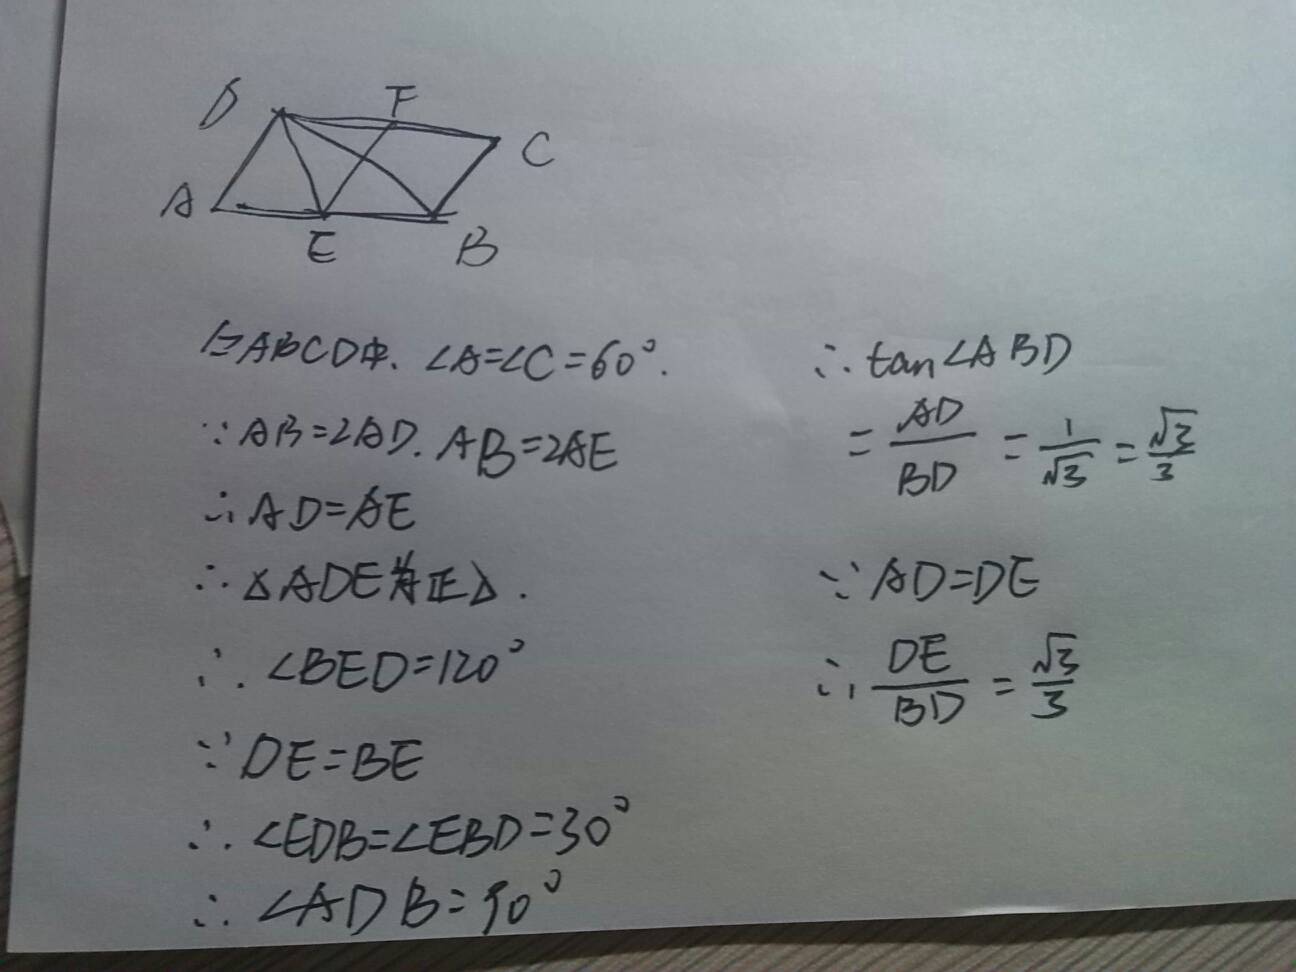 D F
C
A
E B
▱ABCD中. ∠A=∠C=60°.
∵AB=2AD. AB=2AE
∴AD=AE
∴△ADE为正△.
∴∠BED=120°
∵DE=BE
∴∠EDB=∠EBD=30°
∴∠ADB=90°
∴tan∠ABD
=AD/BD=1/√3=√3/3
∵AD=DE
∴DE/BD=√3/3